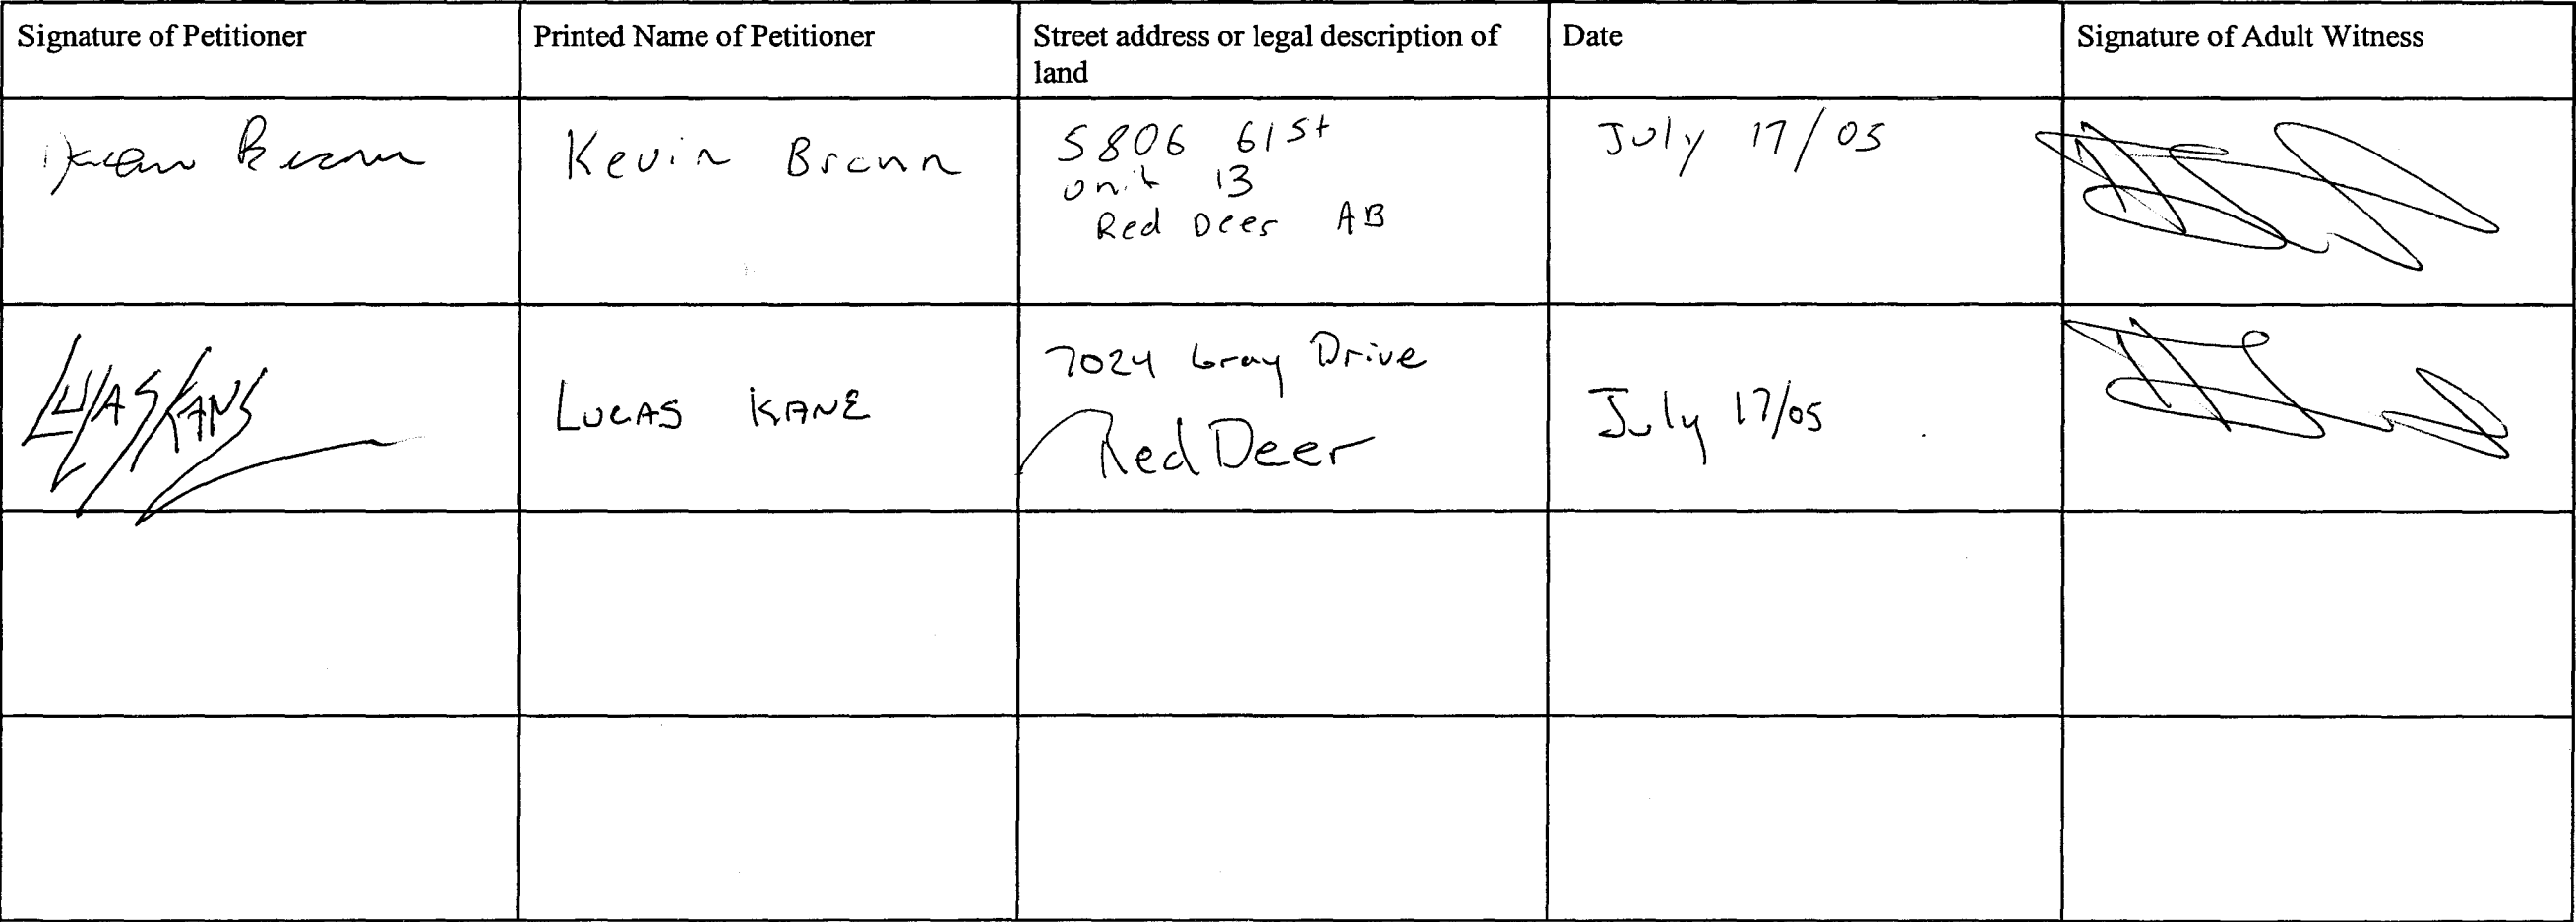 Signature of Petitioner
Printed Name of Petitioner
Street address or legal description of
land
Date
Signature of Adult Witness
Kevin
5806 61 St
Unit 13
Red Deer AB
July 17/05
LUCAS KANE
7024 Gray Drive
Red Deer
July 17/05